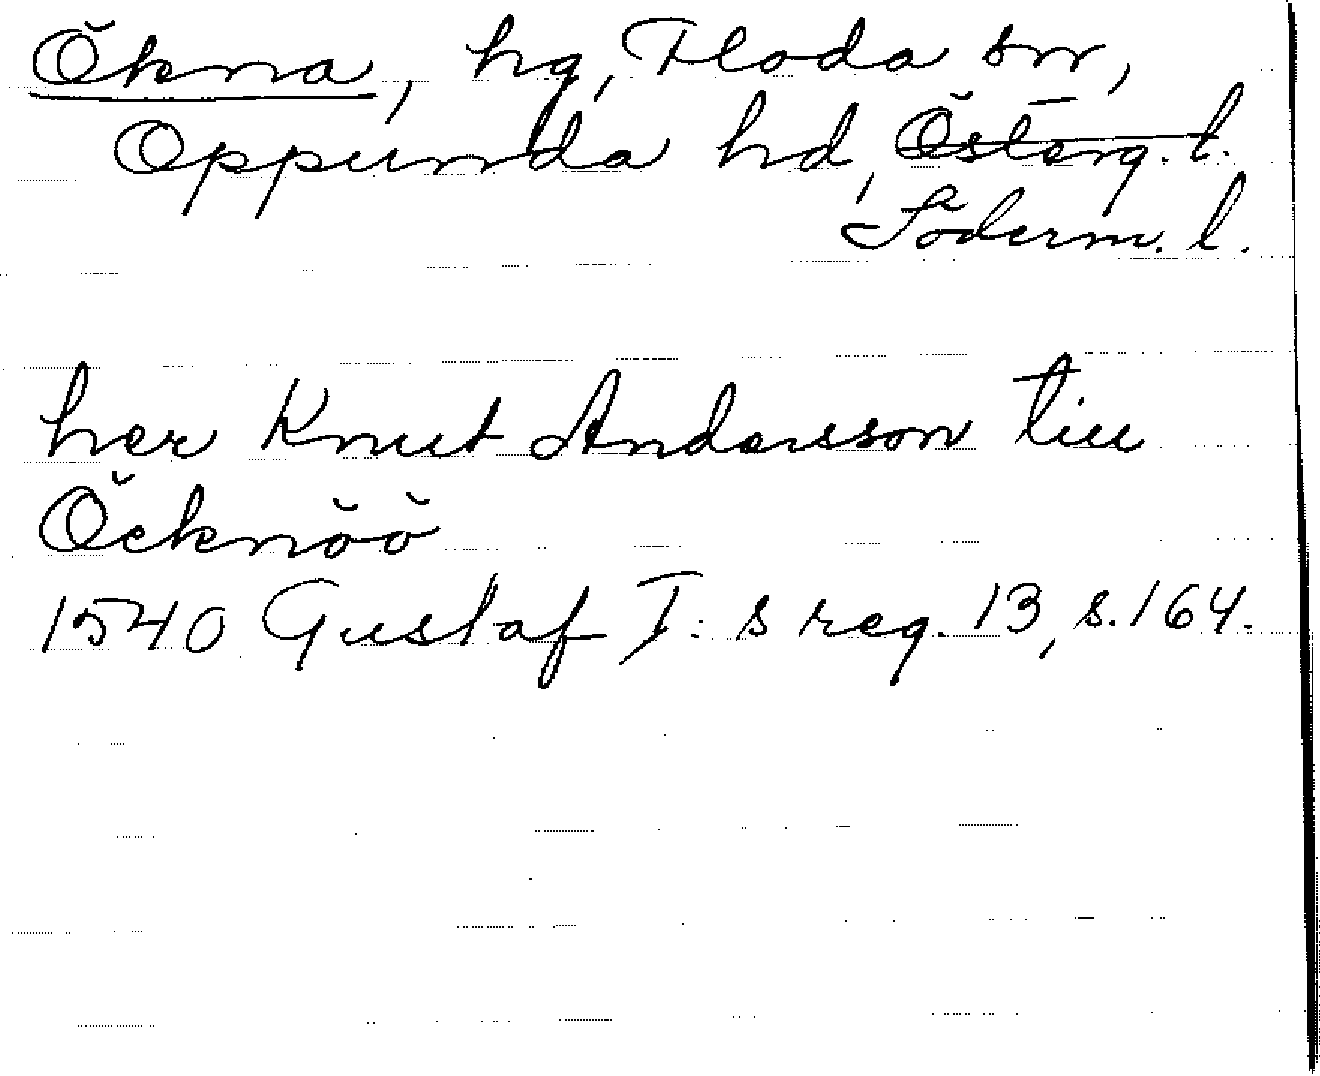 Ökna, hg, Floda sn,
Oppunda hd, Österg. l.
Söderm. l.
her Knut Andersson till
Öcknöö
1540 Gustaf I:s reg. 13, s. 164.